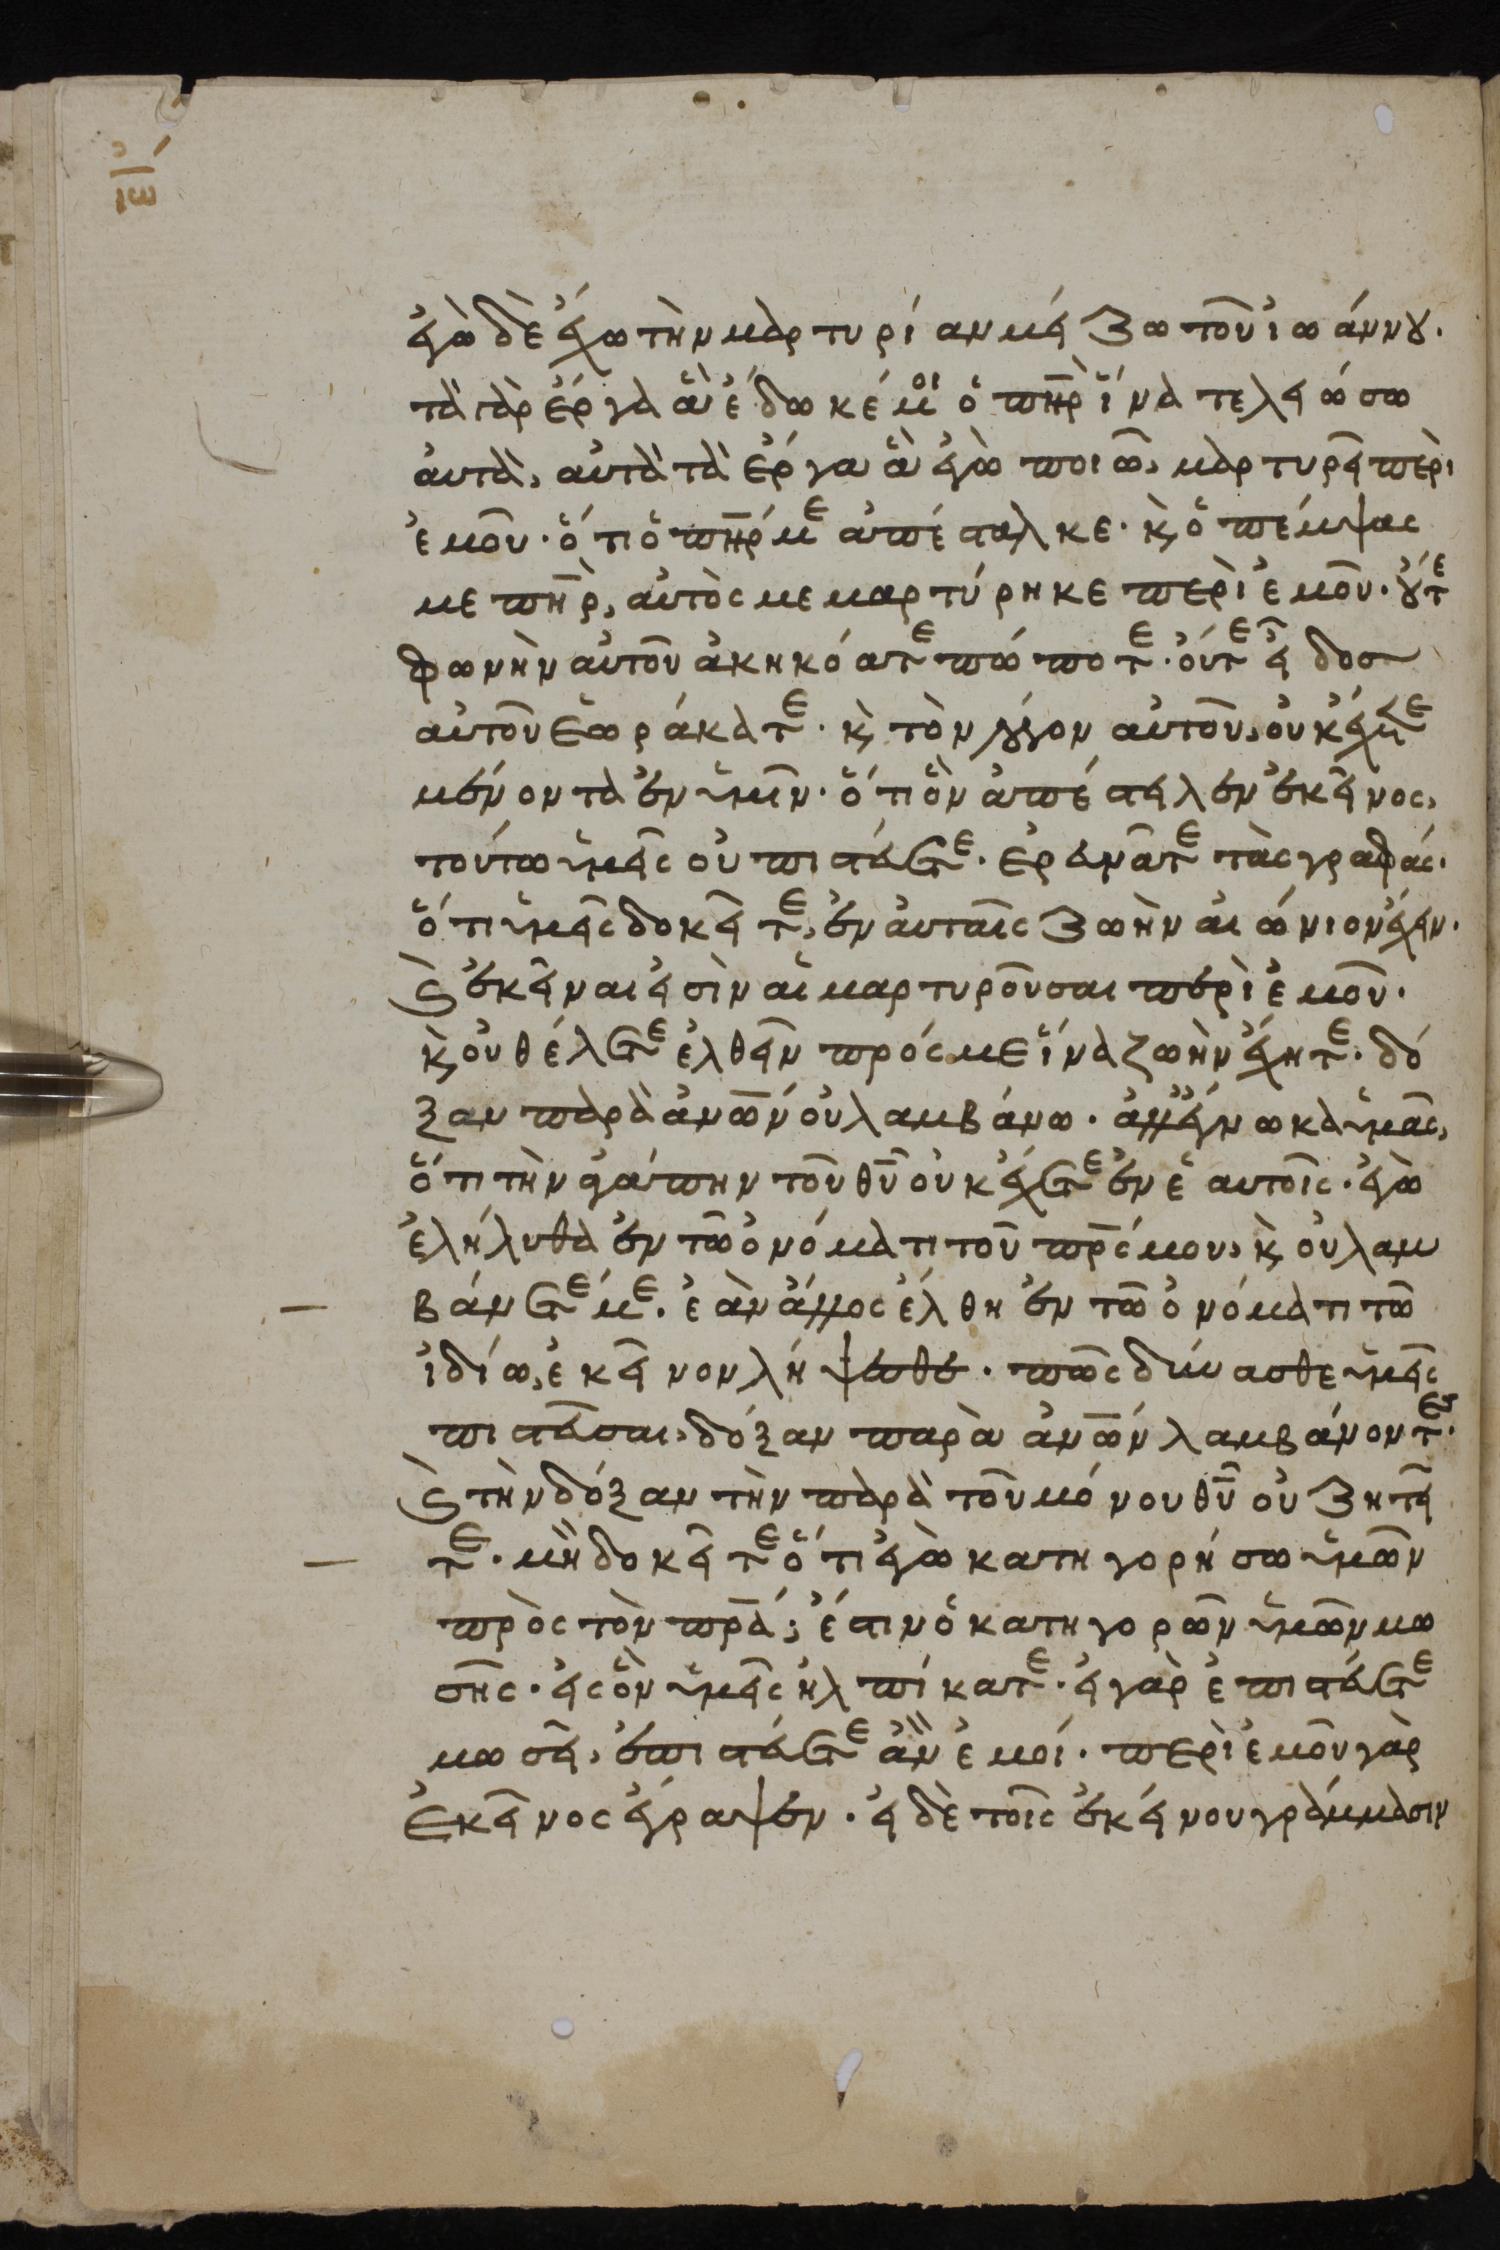 ἐγὼ δὲ ἔχω τὴν μαρτυρίαν μείζω τοῦ ἰωάννου.
τὰ γὰρ ἔργα ἃ ἔδωκέ μοι ὁ πη̅ρ ἵνα τελειώσω
αὐτὰ, αὐτὰ τὰ ἔργα ἃ ἐγὼ ποιῶ, μαρτυρεῖ περὶ
ἐμοῦ· ὅτι ὁ πη̅ρ με ἀπέσταλκε· κ̀ ὁ πέμψας
με πη̅ρ, αὐτὸς μεμαρτύρηκε περὶ ἐμοῦ· οὔτε
φωνὴν αὐτοῦ ἀκηκόατε πώποτε· οὔτε εἶδος
αὐτοῦ ἑωράκατε· κ̀ τὸν λόγον αὐτοῦ, οὐκ ἔχετε
μένοντα ἐν ὑμῖν· ὅτι ὃν ἀπέστειλεν ἐκεῖνος,
τούτω ὑμεῖς οὐ πιστεύετε· ἐρευνᾶτε τὰς γραφάς·
ὅτι ὑμεῖς δοκεῖτε, ἐν αὐταῖς ζωὴν αἰώνιον ἔχειν·
κ̀ ἐκεῖναι εἰσὶν αἱ μαρτυροῦσαι περὶ ἐμοῦ·
κ̀ οὐ θέλετε ἐλθεῖν πρός με ἵνα ζωὴν ἔχητε· δό
ξαν παρὰ ἀνω̅ν οὐ λαμβάνω· ἀλλ' ἔγνωκα ὑμᾶς,
ὅτι τὴν ἀγάπην τοῦ θυ̅ οὐκ ἔχετε ἐν ἑαυτοῖς· ἐγὼ
ἐλήλυθα ἐν τῶ ὀνόματι τοῦ πρ̅ς μου, κ̀ οὐ λαμ
βάνετέ με· ἐὰν ἄλλος ἔλθη ἐν τῶ ὀνόματι τῶ
ἰδίω, ἐκεῖνον λήψεσθε· πῶς δύνασθε ὑμεῖς
πιστεῦσαι, δόξαν παρὰ ἀνω̅ν λαμβάνοντες·
κ̀ τὴν δόξαν τὴν παρὰ τοῦ μόνου θυ̅ οὐ ζητεῖ
τε· μὴ δοκεῖτε ὅτι ἐγὼ κατηγορήσω ὑμῶν
πρὸς τὸν πρ̅α; ἔστιν ὁ κατηγορῶν ὑμῶν μω
σῆς· εἰς ὃν ὑμεῖς ἠλπίκατε· εἰ γὰρ ἐπιστεύετε
μωσεῖ, ἐπιστεύετε ἂν ἐμοί· περὶ ἐμοῦ γὰρ
ἐκεῖνος ἔγραψεν· εἰ δὲ τοῖς ἐκείνου γράμμασιν